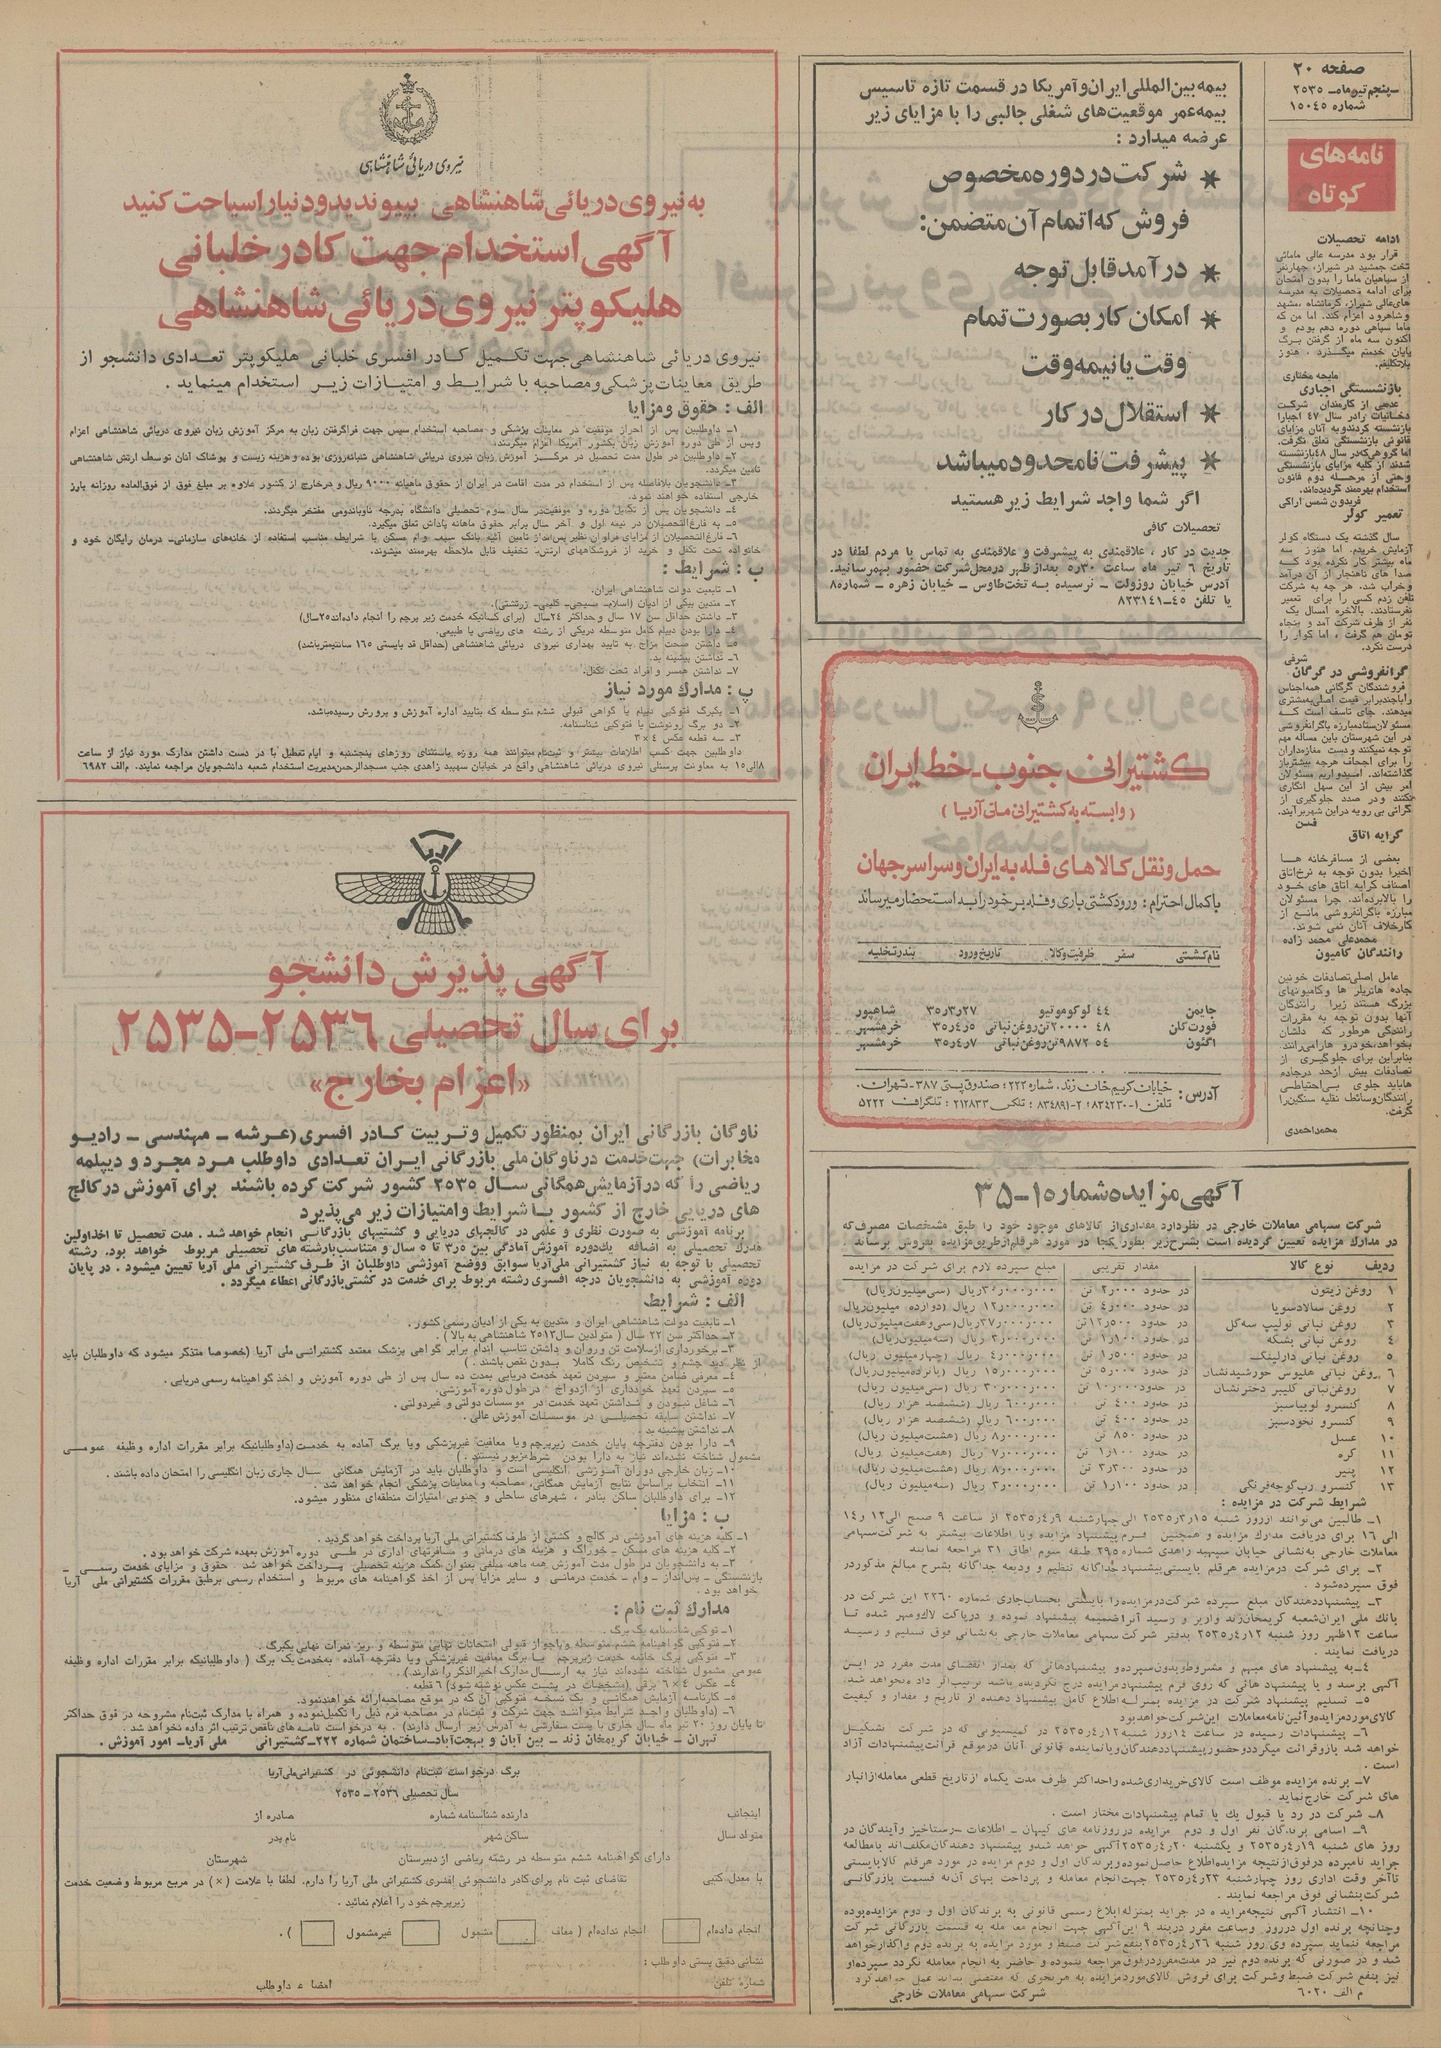 صفحه ۲۰
ـ پنجم تیرماه ـ ۲۵۳۵
شماره ۱۵۰۴۵
نامه‌های
کوتاه
ادامه تحصیلات
قرار بود مدرسه عالی مامائی
تخت جمشید در شیراز، چهارنفر
از سپاهیان ماما را بدون امتحان
برای ادامه تحصیلات به مدرسه
های‌عالی شیراز، کرمانشاه، مشهد
و شاهرود اعزام کند. اما من که
ماما سپاهی دوره دهم بودم و
اکنون سه ماه از گرفتن برگ
پایان خدمتم میگذرد، هنوز
بلاتکلیفم.
ملیحه مختاری
بازنشستگی اجباری
عده‌ای از کارمندان شرکت
دخانیات را در سال ۴۷ اجبارا
بازنشسته کردند و به آنان مزایای
قانونی بازنشستگی تعلق نگرفت.
اما گروهی که در سال ۴۸ بازنشسته
شدند از کلیه مزایای بازنشستگی
وحتی از مرحله دوم قانون
استخدام بهره‌مند گردیده‌اند.
فریدون شمس اراکی
تعمیر کولر
سال گذشته یک دستگاه کولر
آزمایش خریدم. اما هنوز سه
ماه بیشتر کار نکرده بود که
صدا های ناهنجار از آن درآمد
وخراب شد. هر چه به شرکت
تلفن زدم کسی را برای تعمیر
نفرستادند. بالاخره امسال یک
نفر از طرف شرکت آمد و پنجاه
تومان هم گرفت، اما کولر را
درست نکرد.
شرفی
گرانفروشی در گرگان
فروشندگان گرگانی همه‌اجناس
را با چندبرابر قیمت اصلی به‌مشتری
میدهند. جای تاسف است که
مسئولان ستاد مبارزه باگرانفروشی
در این شهرستان باین مساله مهم
توجه نمیکنند و دست مغازه‌داران
را برای اجحاف هرچه بیشتر باز
گذاشته‌اند. امیدواریم مسئولان
امر بیش از این سهل انگاری
نکنند و در صدد جلوگیری از
گرانی بی رویه در این شهر برآیند.
کرایه اتاق
بعضی از مسافرخانه هــا
اخیرا بدون توجه به نرخ‌اتاق
اصناف کرایه اتاق های خود
را بالا برده‌اند. چرا مسئولان
مبارزه باگرانفروشی مانــع از
کارخلاف آنان نمی شوند.
محمدعلی محمد زاده
رانندگان کامیون
عامل اصلی تصادفات خونین
جاده ها تریلر ها و کامیونهای
بزرگ هستند زیرا رانندگان
آنها بدون توجه به مقررات
رانندگی هرطور که دلشان
بخواهد، خودرو ها را می‌رانند
بنابراین برای جلوگیری از
تصادفات بیش از حد در جاده
ها باید جلوی بی‌احتیاطی
رانندگان وسائط نقلیه سنگین را
گرفت.
محمد احمدی
بیمه بین‌المللی ایران و آمریکا در قسمت تازه تاسیس
بیمه عمر موقعیت‌های شغلی جالبی را با مزایای زیر
عرضه میدارد :
* شرکت در دوره مخصوص
فروش که اتمام آن متضمن:
* درآمد قابل توجه
* امکان کار بصورت تمام
وقت یا نیمه وقت
* استقلال در کار
* پیشرفت نامحدود میباشد
اگر شما واجد شرایط زیر هستید
تحصیلات کافی
جدیت در کار ، علاقمندی به پیشرفت و علاقمندی به تماس با مردم لطفا در
تاریخ ۶ تیر ماه ساعت ۵ر۳۰ بعدازظهر درمحل شرکت حضور بهمرسانید.
آدرس خیابان روزولت ـ نرسیده به تخت‌طاوس ـ خیابان زهره ـ شماره ۸
یا تلفن ۴۵ــ۸۲۳۱۴۱
IRAN LINE
کشتیرانی جنوب ـ خط ایران
( وابسته به کشتیرانی ملی آریا )
حمل و نقل کالاهای فله به ایران و سراسر جهان
باکمال احترام : ورود کشتی باری و فله بر خود را به استحضار میرساند
نام کشتی سفر ظرفیت وکالا تاریخ ورود بندر تخلیه
جایمن ۴۴ لوکوموتیو ۲۷ر۳ر۳۵ شاهپور
فورت‌کان ۴۸ ۲۰۰۰۰ تن روغن نباتی ۵ر۴ر۳۵ خرمشهر
اگنون ۵۴ ۹۸۷۲ تن روغن نباتی ۷ر۴ر۳۵ خرمشهر
آدرس : خیابان کریم خان زند، شماره ۲۲۲ ؛ صندوق پستی ۳۸۷ - تهران.
تلفن ۱-۸۳۴۲۳۰ ؛ ۲-۸۳۴۸۹۱ ؛ تلکس ۲۱۲۸۳۳ ؛ تلگراف ۵۲۲۲
آگهی مزایده شماره ۱ـ۳۵
شرکت سهامی معاملات خارجی در نظردارد مقداری از کالاهای موجود خود را طبق مشخصات مصرف که
در مدارک مزایده تعیین گردیده است بشرح زیر بطور یکجا در مورد هر قلم از طریق مزایده بفروش برساند .
ردیف نوع کالا مقدار تقریبی مبلغ سپرده لازم برای شرکت در مزایده
۱ روغن زیتون در حدود ۲ر۰۰۰ تن ۳۰ر۰۰۰ر۰۰۰ ریال (سی میلیون ریال)
۲ روغن سالادسویا در حدود ۴ر۰۰۰ تن ۱۲ر۰۰۰ر۰۰۰ ریال (دوازده میلیون ریال)
۳ روغن نباتی تولیپ سه‌گل در حدود ۱۲ر۵۰۰ تن ۳۷ر۰۰۰ر۰۰۰ ریال (سی‌وهفت میلیون ریال)
۴ روغن نباتی بشکه در حدود ۱ر۱۰۰ تن ۳ر۰۰۰ر۰۰۰ ریال (سه میلیون ریال)
۵ روغن نباتی دارلینگ در حدود ۱ر۵۰۰ تن ۴ر۰۰۰ر۰۰۰ ریال (چهار میلیون ریال)
۶ روغن نباتی هلیوس خورشیدنشان در حدود ۵ر۰۰۰ تن ۱۵ر۰۰۰ر۰۰۰ ریال (پانزده میلیون ریال)
۷ روغن نباتی کلیبر دخترنشان در حدود ۱۰ر۰۰۰ تن ۳۰ر۰۰۰ر۰۰۰ ریال (سی میلیون ریال)
۸ کنسرو لوبیاسبز در حدود ۴۰۰ تن ۶۰۰ر۰۰۰ ریال (ششصد هزار ریال)
۹ کنسرو نخودسبز در حدود ۴۰۰ تن ۶۰۰ر۰۰۰ ریال (ششصد هزار ریال)
۱۰ عسل در حدود ۸۵۰ تن ۸ر۰۰۰ر۰۰۰ ریال (هشت میلیون ریال)
۱۱ کره در حدود ۱ر۱۰۰ تن ۷ر۰۰۰ر۰۰۰ ریال (هفت میلیون ریال)
۱۲ پنیر در حدود ۳ر۲۰۰ تن ۸ر۰۰۰ر۰۰۰ ریال (هشت میلیون ریال)
۱۳ کنسرو رب گوجه‌فرنگی در حدود ۱ر۱۰۰ تن ۳ر۰۰۰ر۰۰۰ ریال (سه میلیون ریال)
شرایط شرکت در مزایده :
۱ـ طالبین می‌توانند از روز شنبه ۱۵ر۳ر۲۵۳۵ الی چهارشنبه ۹ر۴ر۲۵۳۵ از ساعت ۹ صبح الی ۱۲ و ۱۴
الی ۱۶ برای دریافت مدارک مزایده و همچنین فرم پیشنهاد مزایده ویا اطلاعات بیشتر به شرکت سهامی
معاملات خارجی به‌نشانی خیابان سپهبد زاهدی شماره ۲۹۵ طبقه سوم اطاق ۳۱ مراجعه نمایند
۲ـ برای شرکت در مزایده هر قلم بایستی پیشنهاد جداگانه تنظیم و ودیعه جداگانه بشرح مبالغ مذکور در
فوق سپرده شود .
۳ـ پیشنهاددهندگان مبلغ سپرده شرکت در مزایده را بایستی بحساب جاری شماره ۲۲۶۰ این شرکت در
بانک ملی ایران شعبه کریمخان زند واریز و رسید آنرا ضمیمه پیشنهاد نموده و درپاکت لاک ومهر شده تــا
ساعت ۱۲ ظهر روز شنبه ۱۲ر۴ر۲۵۳۵ بدفتر شرکت سهامی معاملات خارجی به‌نشانی فوق تسلیم و رسیــد
دریافت نمایند .
۴ـ به پیشنهاد های مبهم و مشروط و بدون سپرده و پیشنهادهائی که بعد از انقضای مدت مقرر در ایــن
آگهی برسد و یا پیشنهاد هائی که روی فرم پیشنهاد مزایده درج نگردیده باشد ترتیب اثر داده نخواهد شد.
۵ـ تسلیم پیشنهاد شرکت در مزایده بمنزلــه اطلاع کامل پیشنهاد دهنده از تاریخ و مقدار و کیفیت
کالای مورد مزایده و آئین‌نامه معاملات این شرکت خواهد بود
۶ـ پیشنهادات رسیده در ساعت ۱۴ روز شنبه ۱۲ر۴ر۲۵۳۵ در کمیسیونی که در شرکت تشکیــل
خواهد شد باز و قرائت میگردد و حضور پیشنهاددهندگان ویا نماینده قانونی آنان در موقع قرائت پیشنهادات آزاد
است .
۷ـ برنده مزایده موظف است کالای خریداری شده را حداکثر ظرف مدت یکماه از تاریخ قطعی معامله از انبار
های شرکت خارج نماید .
۸ـ شرکت در رد یا قبول یک یا تمام پیشنهادات مختار است .
۹ـ اسامی برندگان نفر اول و دوم مزایده در روزنامه های کیهان ـ اطلاعات ـ رستاخیز و آیندگان در
روز های شنبه ۱۹ر۴ر۲۵۳۵ و یکشنبه ۲۰ر۴ر۲۵۳۵ آگهی خواهد شد و پیشنهاد دهندگان مکلف‌اند بامطالعه
جراید نامبرده در فوق از نتیجه مزایده اطلاع حاصل نموده و برندگان اول و دوم مزایده در مورد هر قلم کالا بایستی
تا آخر وقت اداری روز چهارشنبه ۲۳ر۴ر۲۵۳۵ جهت انجام معامله و پرداخت بهای آن به قسمت بازرگانی
شرکت بنشانی فوق مراجعه نمایند .
۱۰ـ انتشار آگهی نتیجه مزایده در جراید بمنزله ابلاغ رسمی قانونی به برندگان اول و دوم مزایده بوده
وچنانچه برنده اول در روز وساعت مقرر دربند ۹ این آگهی جهت انجام معامله به قسمت بازرگانی شرکت
مراجعه ننماید سپرده وی روز شنبه ۲۶ر۴ر۲۵۳۵ بنفع شرکت ضبط و مورد مزایده به برنده دوم واگذار خواهد
شد و در صورتی که برنده دوم نیز در مدت مقرر در فوق مراجعه ننموده و حاضر به انجام معامله نگردد سپرده او
نیز بنفع شرکت ضبط و شرکت برای فروش کالای مورد مزایده به هر نحوی که مقتضی بداند عمل خواهد کرد
م الف ۶۰۲۰ شرکت سهامی معاملات خارجی
نیروی دریائی شاهنشاهی
به نیروی دریائی شاهنشاهی بپیوندید و دنیا را سیاحت کنید
آگهی استخدام جهت کادر خلبانی
هلیکوپتر نیروی دریائی شاهنشاهی
نیروی دریائی شاهنشاهی جهت تکمیل کادر افسری خلبانی هلیکوپتر تعدادی دانشجو از
طریق معاینات پزشکی و مصاحبه با شرایط و امتیازات زیر استخدام مینماید .
الف : حقوق و مزایا
۱ـ داوطلبین پس از احراز موفقیت در معاینات پزشکی و مصاحبه استخدام سپس جهت فراگرفتن زبان به مرکز آموزش زبان نیروی دریائی شاهنشاهی اعزام
وپس از طی دوره آموزش زبان بکشور آمریکا اعزام میگردند.
۲ـ داوطلبین در طول مدت تحصیل در مرکز آموزش زبان نیروی دریائی شاهنشاهی شبانه‌روزی بوده و هزینه زیست و پوشاک آنان توسط ارتش شاهنشاهی
تامین میگردد.
۳ـ دانشجویان بلافاصله پس از استخدام در مدت اقامت در ایران از حقوق ماهیانه ۹۰۰۰ ریال و در خارج از کشور علاوه بر مبلغ فوق از فوق‌العاده روزانه بارز
خارجی استفاده خواهند نمود.
۴ـ دانشجویان پس از تکمیل دوره و موفقیت در سال سوم تحصیلی دانشگاه بدرجه ناوبان‌دومی مفتخر میگردند.
۵ـ به فارغ‌التحصیلان در نیمه اول و آخر سال برابر حقوق ماهانه پاداش تعلق میگیرد.
۶ـ فارغ‌التحصیلان از مزایای فراوان نظیر پس‌انداز تامین آتیه بانک سپه و وام مسکن با شرایط مناسب استفاده از خانه‌های سازمانی ـ درمان رایگان خود و
خانواده تحت تکفل و خرید از فروشگاههای ارتش با تخفیف قابل ملاحظه بهره‌مند میشوند.
ب : شرایط :
۱ـ تابعیت دولت شاهنشاهی ایران.
۲ـ متدین بیکی از ادیان (اسلام ـ مسیحی ـ کلیمی ـ زرتشتی).
۳ـ داشتن حداقل سن ۱۷ سال و حداکثر ۲۴ سال (برای کسانیکه خدمت زیر پرچم را انجام داده‌اند ۲۵ سال)
۴ـ دارا بودن دیپلم کامل متوسطه در یکی از رشته های ریاضی یا طبیعی.
۵ـ داشتن صحت مزاج به تایید بهداری نیروی دریائی شاهنشاهی (حداقل قد بایستی ۱۶۵ سانتیمتر باشد)
۶ـ نداشتن پیشینه بد.
۷ـ نداشتن همسر و افراد تحت تکفل.
پ : مدارک مورد نیاز
۱ـ یکبرگ فتوکپی دیپلم یا گواهی قبولی ششم متوسطه که بتایید اداره آموزش و پرورش رسیده باشد.
۲ـ دو برگ رونوشت یا فتوکپی شناسنامه.
۳ـ سه قطعه عکس ۴ × ۳
داوطلبین جهت کسب اطلاعات بیشتر و ثبت‌نام میتوانند همه روزه باستثنای روزهای پنجشنبه و ایام تعطیل با در دست داشتن مدارک مورد نیاز از ساعت
۸ الی ۱۵ به معاونت پرسنلی نیروی دریائی شاهنشاهی واقع در خیابان سپهبد زاهدی جنب مسجدالرحمن مدیریت استخدام شعبه دانشجویان مراجعه نمایند. م الف ۶۹۸۲
آریا
آگهی پذیرش دانشجو
برای سال تحصیلی ۲۵۳۶-۲۵۳۵
«اعزام بخارج»
ناوگان بازرگانی ایران بمنظور تکمیل و تربیت کادر افسری (عرشه ـ مهندسی ـ رادیو
مخابرات) جهت خدمت در ناوگان ملی بازرگانی ایران تعدادی داوطلب مرد مجرد و دیپلمه
ریاضی را که در آزمایش همگانی سال ۲۵۳۵ کشور شرکت کرده باشند برای آموزش در کالج
های دریایی خارج از کشور بــا شرایط و امتیازات زیر می‌پذیرد
برنامه آموزشی به صورت نظری و علمی در کالجهای دریایی و کشتیهای بازرگانی انجام خواهد شد . مدت تحصیل تا اخذ اولین
مدرک تحصیلی به اضافه یک دوره آموزش آمادگی بین ۳ر۵ تا ۵ سال و متناسب با رشته های تحصیلی مربوط خواهد بود. رشته
تحصیلی با توجه به نیاز کشتیرانی ملی آریا سوابق و وضع آموزشی داوطلبان از طرف کشتیرانی ملی آریا تعیین میشود . در پایان
دوره آموزشی به دانشجویان درجه افسری رشته مربوط برای خدمت در کشتی بازرگانی اعطاء میگردد .
الف : شرایط
۱ـ تابعیت دولت شاهنشاهی ایران و متدین به یکی از ادیان رسمی کشور .
۲ـ حداکثر سن ۲۲ سال ( متولدین سال ۲۵۱۳ شاهنشاهی به بالا ) .
۳ـ برخورداری از سلامت تن و روان و داشتن تناسب اندام برابر گواهی پزشک معتمد کشتیرانی ملی آریا (خصوصا متذکر میشود که داوطلبان باید
از نظر دید چشم و تشخیص رنگ کاملا بدون نقص باشند . )
۴ـ معرفی ضامن معتبر و سپردن تعهد خدمت دریایی بمدت ده سال پس از طی دوره آموزش و اخذ گواهینامه رسمی دریایی .
۵ـ سپردن تعهد خودداری از ازدواج در طول دوره آموزشی.
۶ـ شاغل نبودن و نداشتن تعهد خدمت در موسسات دولتی و غیردولتی .
۷ـ نداشتن سابقه تحصیلی در موسسات آموزش عالی .
۸ـ نداشتن پیشینه بد .
۹ـ دارا بودن دفترچه پایان خدمت زیرپرچم ویا معافیت غیرپزشکی ویا برگ آماده به خدمت (داوطلبانیکه برابر مقررات اداره وظیفه عمومی
مشمول شناخته نشده‌اند نیاز به دارا بودن شرط مزبور نیستند . )
۱۰ـ زبان خارجی دوران آموزشی انگلیسی است و داوطلبان باید در آزمایش همگانی سال جاری زبان انگلیسی را امتحان داده باشند .
۱۱ـ انتخاب براساس نتایج آزمایش همگانی، مصاحبه و معاینات پزشکی انجام خواهد شد .
۱۲ـ برای داوطلبان ساکن بنادر ، شهرهای ساحلی و جنوبی امتیازات منطقه‌ای منظور میشود.
ب : مزایا
۱ـ کلیه هزینه های آموزشی در کالج و کشتی از طرف کشتیرانی ملی آریا پرداخت خواهد گردید .
۲ـ کلیه هزینه های مسکن ـ خوراک و هزینه های درمانی و مسافرتهای اداری در طــی دوره آموزش بعهده شرکت خواهد بود .
۳ـ به دانشجویان در طول مدت آموزش همه ماهه مبلغی بعنوان کمک هزینه تحصیلی پــرداخت خواهد شد . حقوق و مزایای خدمت رسمی ـ
بازنشستگی ـ پس‌انداز ـ وام ـ خدمت درمانی و سایر مزایا پس از اخذ گواهینامه های مربوط و استخدام رسمی برطبق مقررات کشتیرانی ملی آریا
خواهد بود .
مدارک ثبت نام :
۱ـ فتوکپی شناسنامه یک برگ .
۲ـ فتوکپی گواهینامه ششم متوسطه و یا جواز قبولی امتحانات نهایی متوسطه و ریز نمرات نهایی یکبرگ .
۳ـ فتوکپی برگ خاتمه خدمت زیرپرچم یــا برگ معافیت غیرپزشکی ویا دفترچه آماده به خدمت یک برگ ( داوطلبانیکه برابر مقررات اداره وظیفه
عمومی مشمول شناخته نشده‌اند نیاز به ارسال مدارک اخیرالذکر را ندارند.)
۴ـ عکس ۴ × ۶ برقی (مشخصات در پشت عکس نوشته شود) ۶ قطعه .
۵ـ کارنامه آزمایش همگانی و یک نسخه فتوکپی آن که در موقع مصاحبه ارائه خواهند نمود.
۶ـ (داوطلبان واجد شرایط میتوانند جهت شرکت و ثبت‌نام در مصاحبه فرم ذیل را تکمیل نموده و همراه با مدارک ثبت‌نام مشروحه در فوق حداکثر
تا پایان روز ۲۰ تیر ماه سال جاری با پست سفارشی به آدرس زیر ارسال دارند) . به درخواست نامه های ناقص ترتیب اثر داده نخواهد شد .
تهران ـ خیابان کریمخان زند ـ بین آبان و بهجت‌آباد ـ ساختمان شماره ۲۲۲ ـ کشتیرانی ملی آریا ـ امور آموزش .
برگ درخواست ثبت‌نام دانشجوئی در کشتیرانی ملی آریا
سال تحصیلی ۲۵۳۶ ـ ۲۵۳۵
اینجانب دارنده شناسنامه شماره صادره از
متولد سال ساکن شهر نام پدر
دارای گواهینامه ششم متوسطه در رشته ریاضی از دبیرستان شهرستان
با معدل کتبی تقاضای ثبت نام برای کادر دانشجوئی افسری کشتیرانی ملی آریا را دارم. لطفا با علامت (×) در مربع مربوط وضعیت خدمت
زیر پرچم خود را اعلام نمائید .
انجام داده‌ام انجام نداده‌ام ( معاف مشمول غیرمشمول ) .
نشانی دقیق پستی داوطلب :
شماره تلفن امضاء داوطلب